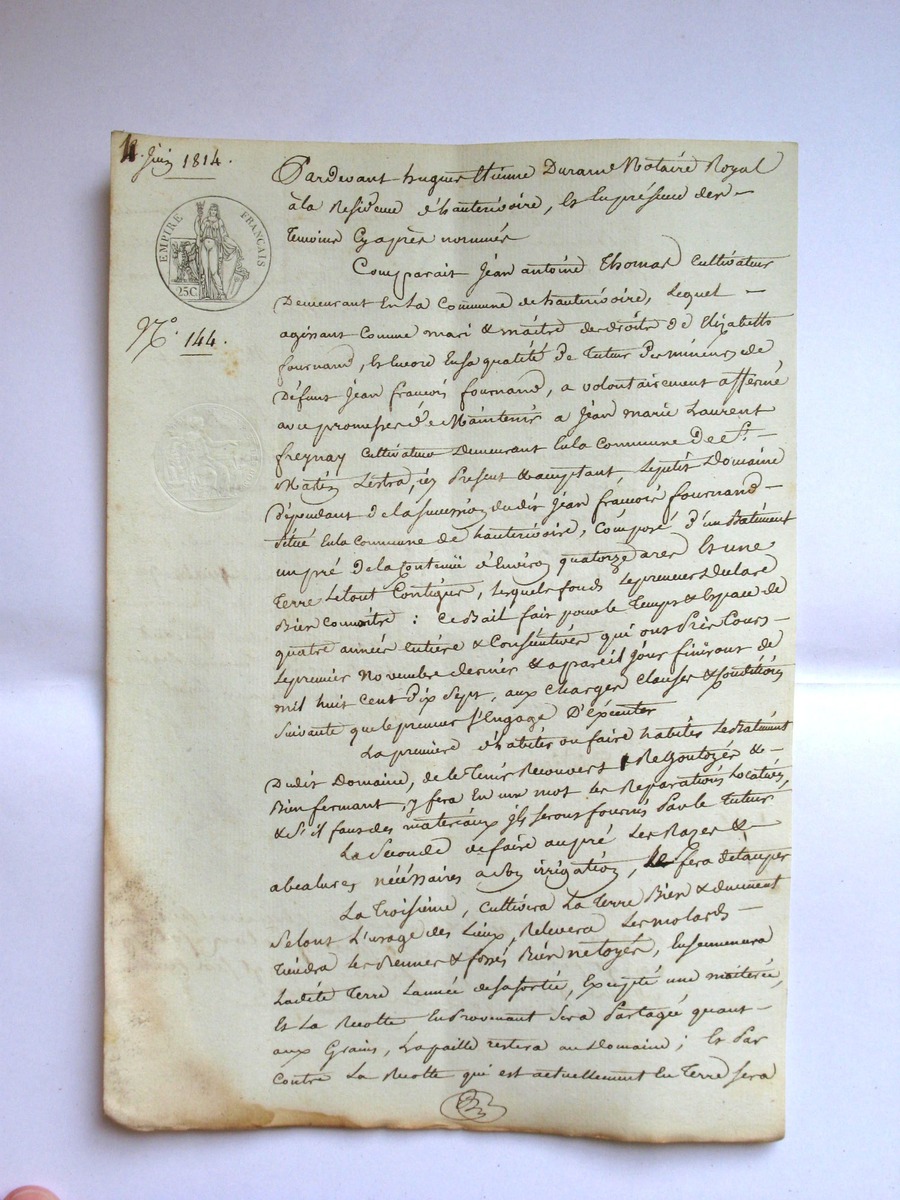 11. Juin 1814.
EMPIRE FRANÇAIS
25C
N.° 144.
Pardevant hugues Etienne Durand Notaire Royal
à la Residence d'hauterivoire, Et En présence des
temoins Cyaprès nommés
Comparait Jean antoine Thomas Cultivateur
Demeurant En La Commune de hauterivoire, Lequel
agissant Comme mari & maitre des droits de Elizabeth
fournand, Et Encore En sa qualité de Tuteur des mineurs de
Défunt Jean françois fournand, a volontairement affermé
avec promesse de Maintenir a Jean marie Laurent
freynay Cultivateur Demeurant En la Commune de St.
Martin Lestra, icy Present & acceptant Le petit Domaine
Dépendant de la succession dudit Jean françois fournand
situé En la Commune de hauterivoire, Composé d'un Batiment
un pré de la Contenue d'Environ quatorze ares Et une
Terre Le tout Contigue, Lesquels fonds Le preneur Declare
Bien Connoitre : Ce Bail fait pour le Temps & Espace de
quatre année Entière & Consécutives qui ont Pris Cours
Le premier Novembre dernier & a pareil Jour finiront de
mil huit Cent Dix Sept, aux Charges Clauses & Conditions
Suivante que le preneur s'Engage D'Exécuter
La première d'habiter ou faire habiter Le Batiment
Dudit Domaine, de le Tenir Recouvert &
Bien fermant, y fera En un mot Les Reparations Locatives,
& S'il faut des materiaux ils seront fournis Par le Tuteur
La Seconde de faire au pré Les Razes &
abealures nécessaires a Son irrigation, Le fera detauper
La Troisième, Cultivera La Terre Bien & duement
Selont L'usage des Lieux, Relevera Les molards
Tiendra Les & fossés Bien netoyés, Ensemencera
Ladite Terre L'année de sa sortie, Excepté une maiterée,
Et La Recolte En Provenant Sera Partagée quant
aux Grains, La paille restera au Domaine ; Et Par
Contre La Recolte qui est actuellement En Terre sera